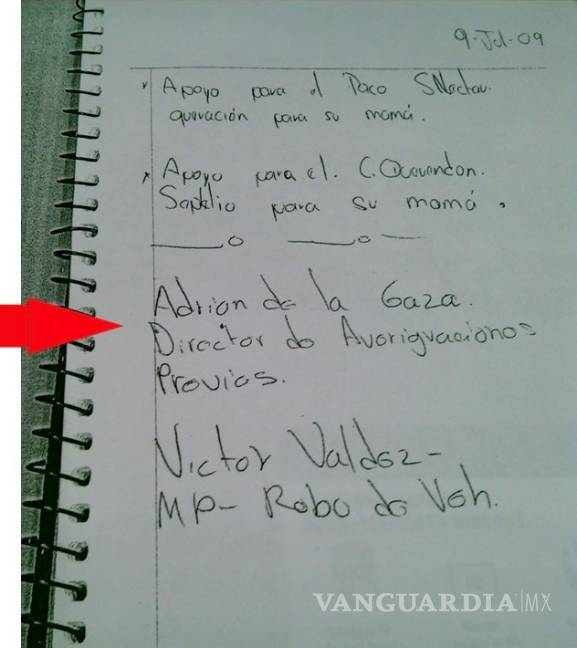 9-Jul-09
Apoyo para el Paco
operación para su mamá.
Apoyo para el. C.
Sepelio para su mamá.
Adrian de la Gaza.
Director de Averiguaciones
Previas.
Victor Valdez-
MP- Robo de Veh.
VANGUARDIA|MX